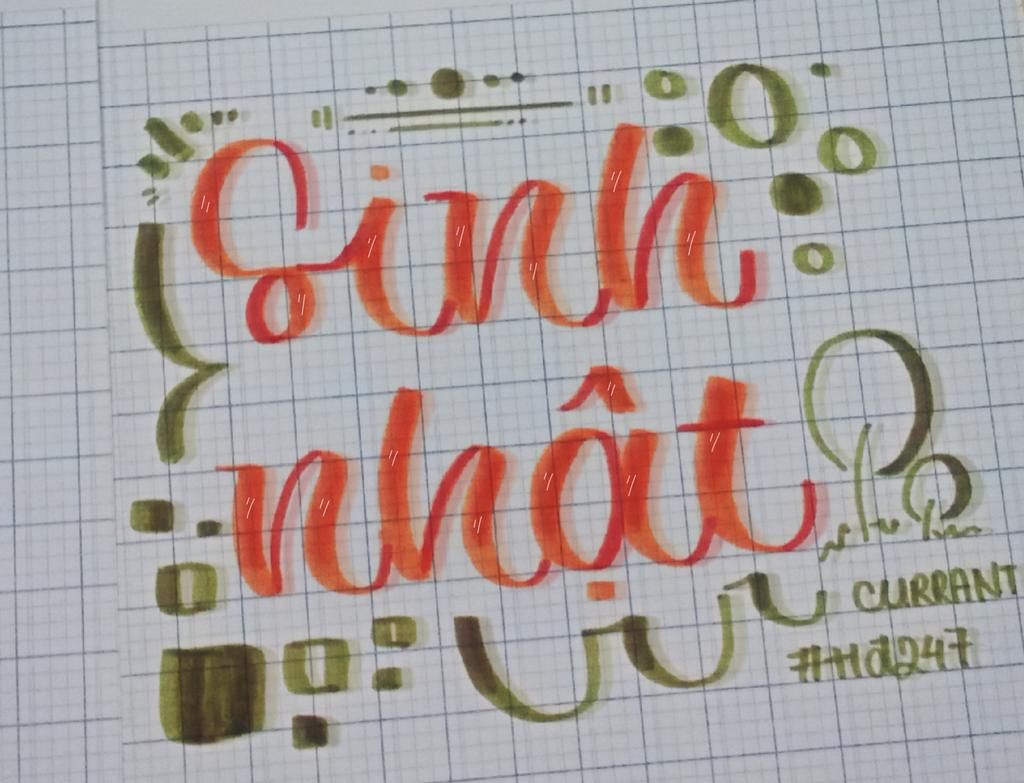 Sinh
nhật
CURRANT
#Hd247